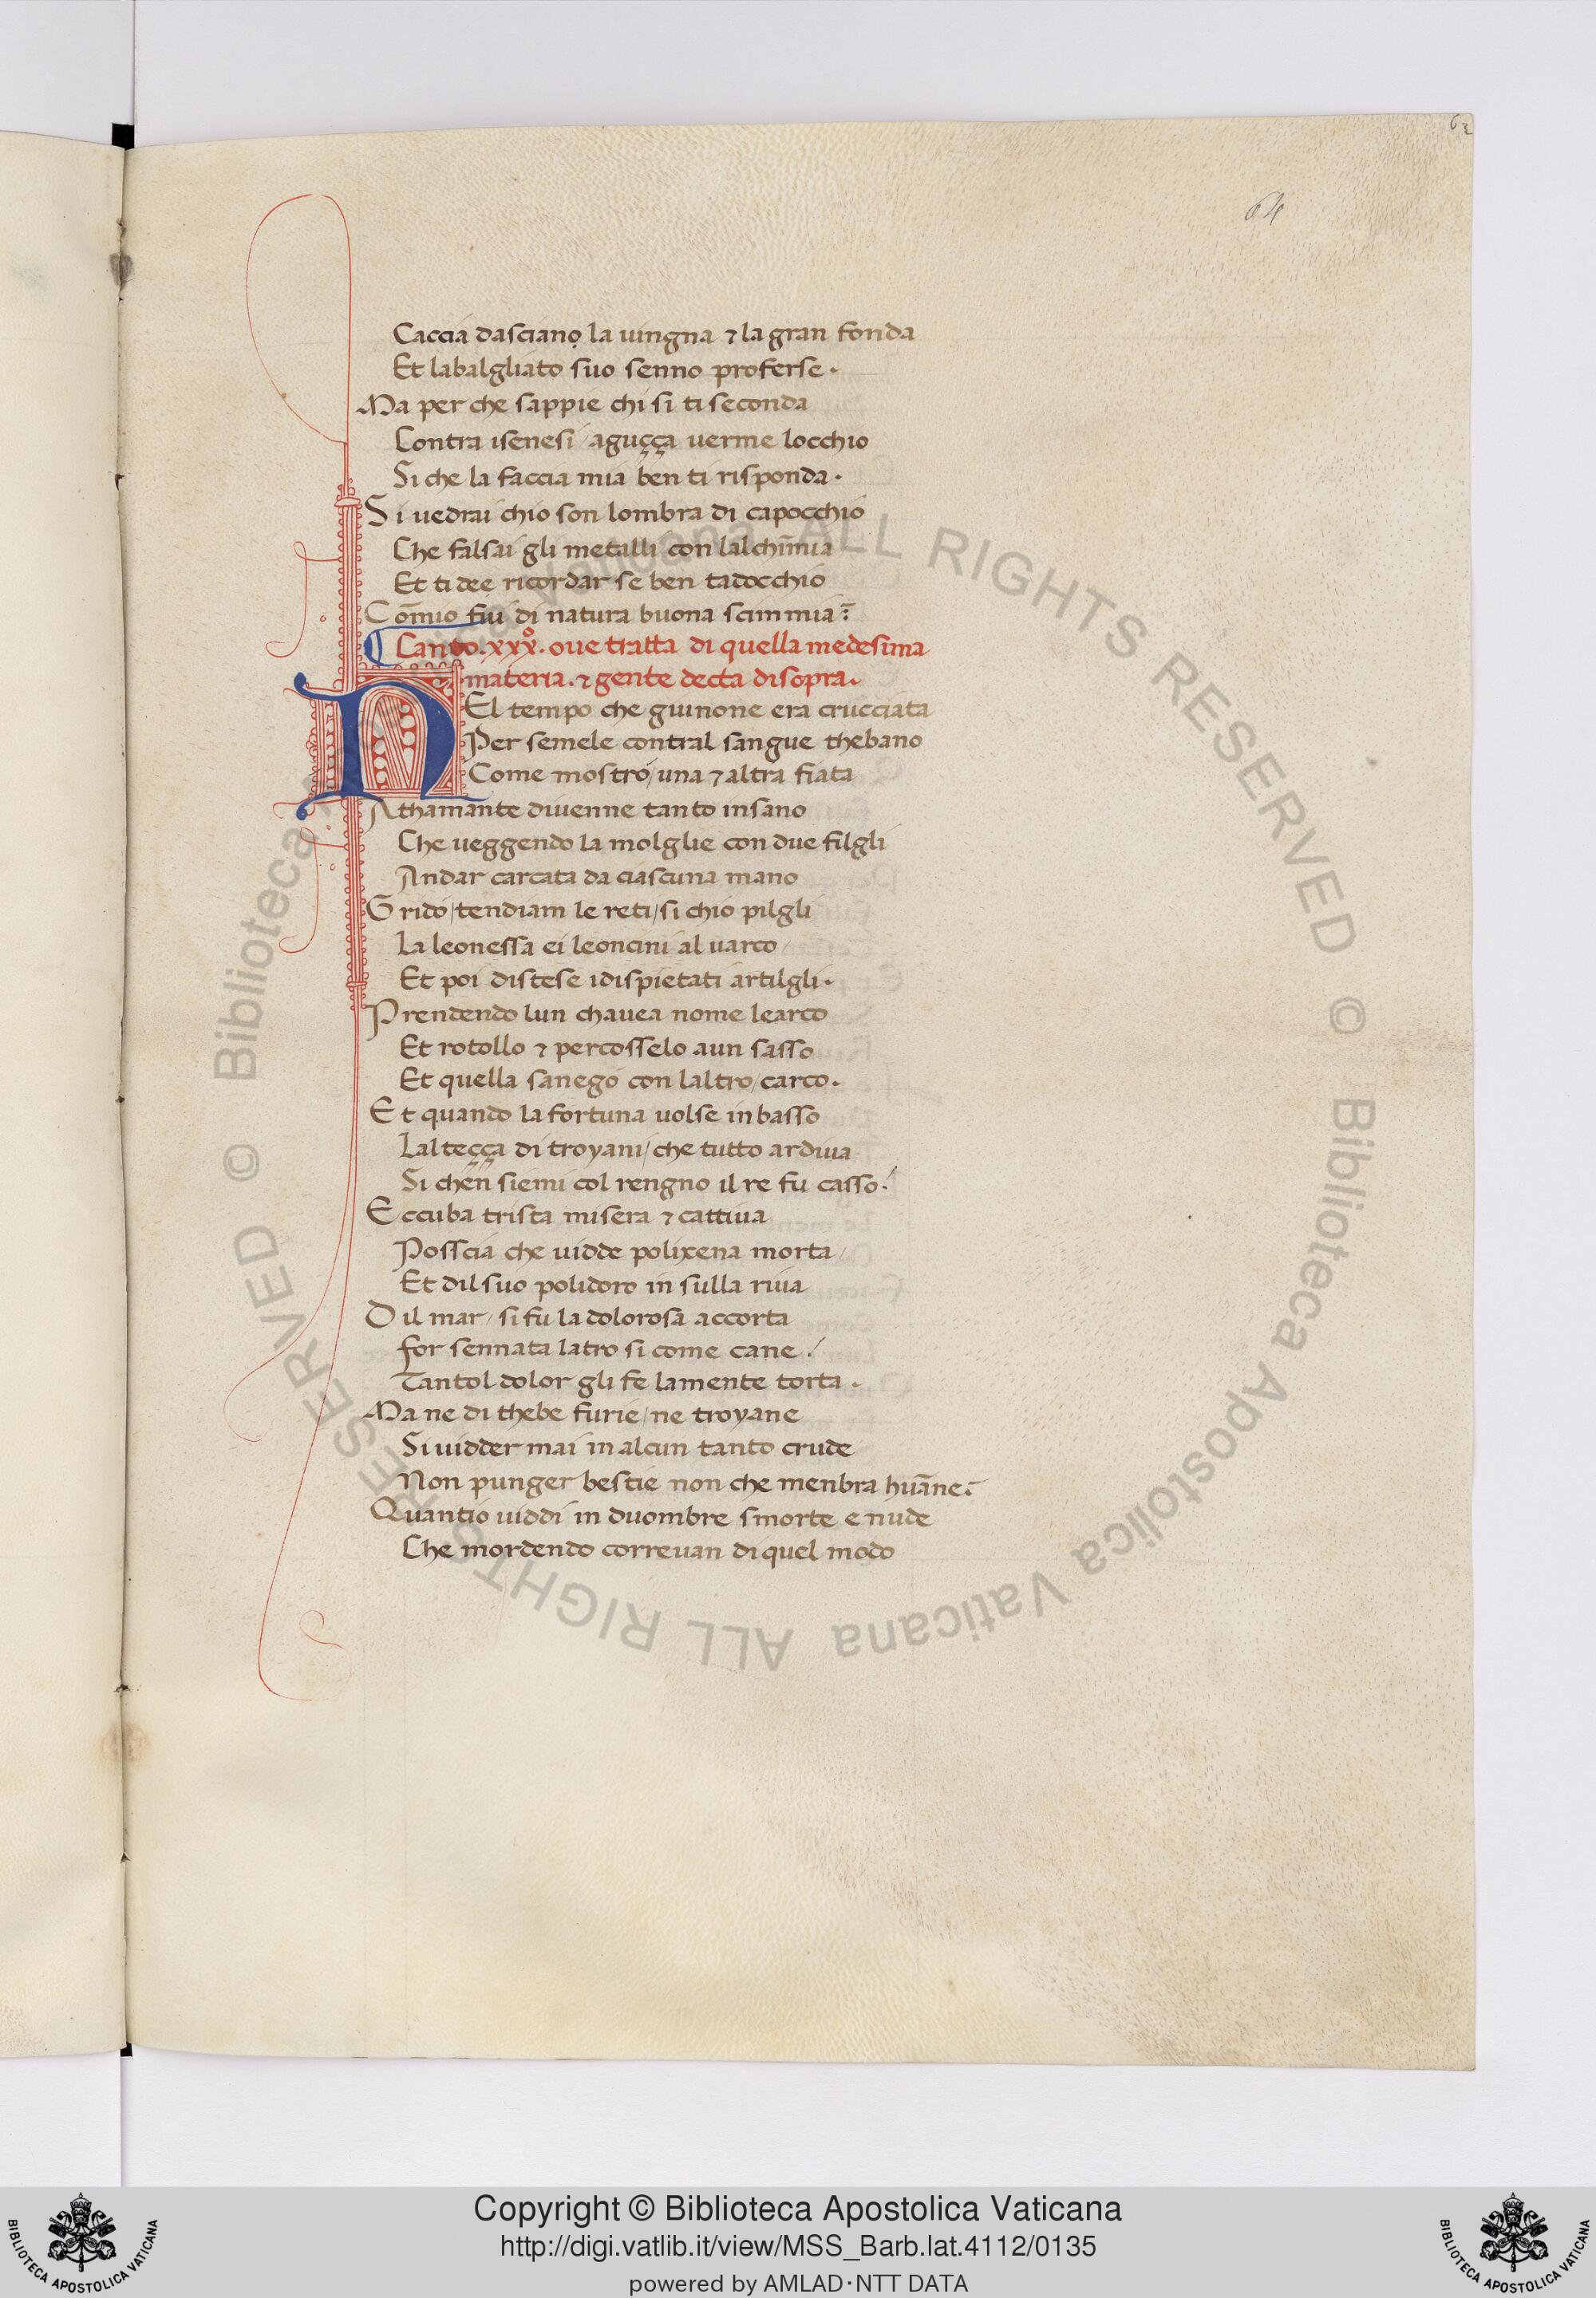 62
64
Caccia dasciano la uingna ⁊ la gran fonda
Et labalgliato suo senno proferse.
Ma per che sappie chi si ti seconda
Contra isenesi / aguçça uerme locchio
Si che la faccia mia ben ti risponda.
Si uedrai chio son lombra di capocchio
Che falsai gli metalli con lalchim̄ia
Et ti dee ricordar se ben tadocchio
Com̄io fui di natura buona scimmia:
Canto .xxx°. oue tratta di quella medesima
materia. ⁊ gente decta di sopra.
NEl tempo che guinone era crucciata
Per semele contral sangue thebano
Come mostro / una ⁊ altra fiata
Athamante diuenne tanto insano
Che ueggendo la molglie con due filgli
Andar carcata da ciascuna mano
Grido / tendiam le reti / si chio pilgli
La leonessa ei leoncini al uarco /
Et poi distese idispietati artilgli.
Prendendo lun chauea nome learco
Et rotollo ⁊ percosselo aun sasso
Et quella sanego con laltro / carco.
Et quando la fortuna uolse in basso
Lalteçça di troyani / che tutto ardiua
Si chen siemi col rengno il re fu casso.
Eccuba trista misera ⁊ cattiua
Posscia che uidde polixena morta /
Et dil suo polidoro in sulla riua
Dil mar / si fu la dolorosa accorta
for sennata latro si come cane.
Tantol dolor gli fe lamente torta.
Ma ne di thebe furie / ne troyane
Si uidder mai in alcun tanto crude
Non punger bestie non che menbra huāne.
Quantio uiddi in duombre smorte e nude
Che mordendo correuan di quel modo
© Biblioteca Apostolica Vaticana ALL RIGHTS RESERVED
Copyright © Biblioteca Apostolica Vaticana
http://digi.vatlib.it/view/MSS_Barb.lat.4112/0135
powered by AMLAD·NTT DATA
BIBLIOTECA APOSTOLICA VATICANA
BIBLIOTECA APOSTOLICA VATICANA